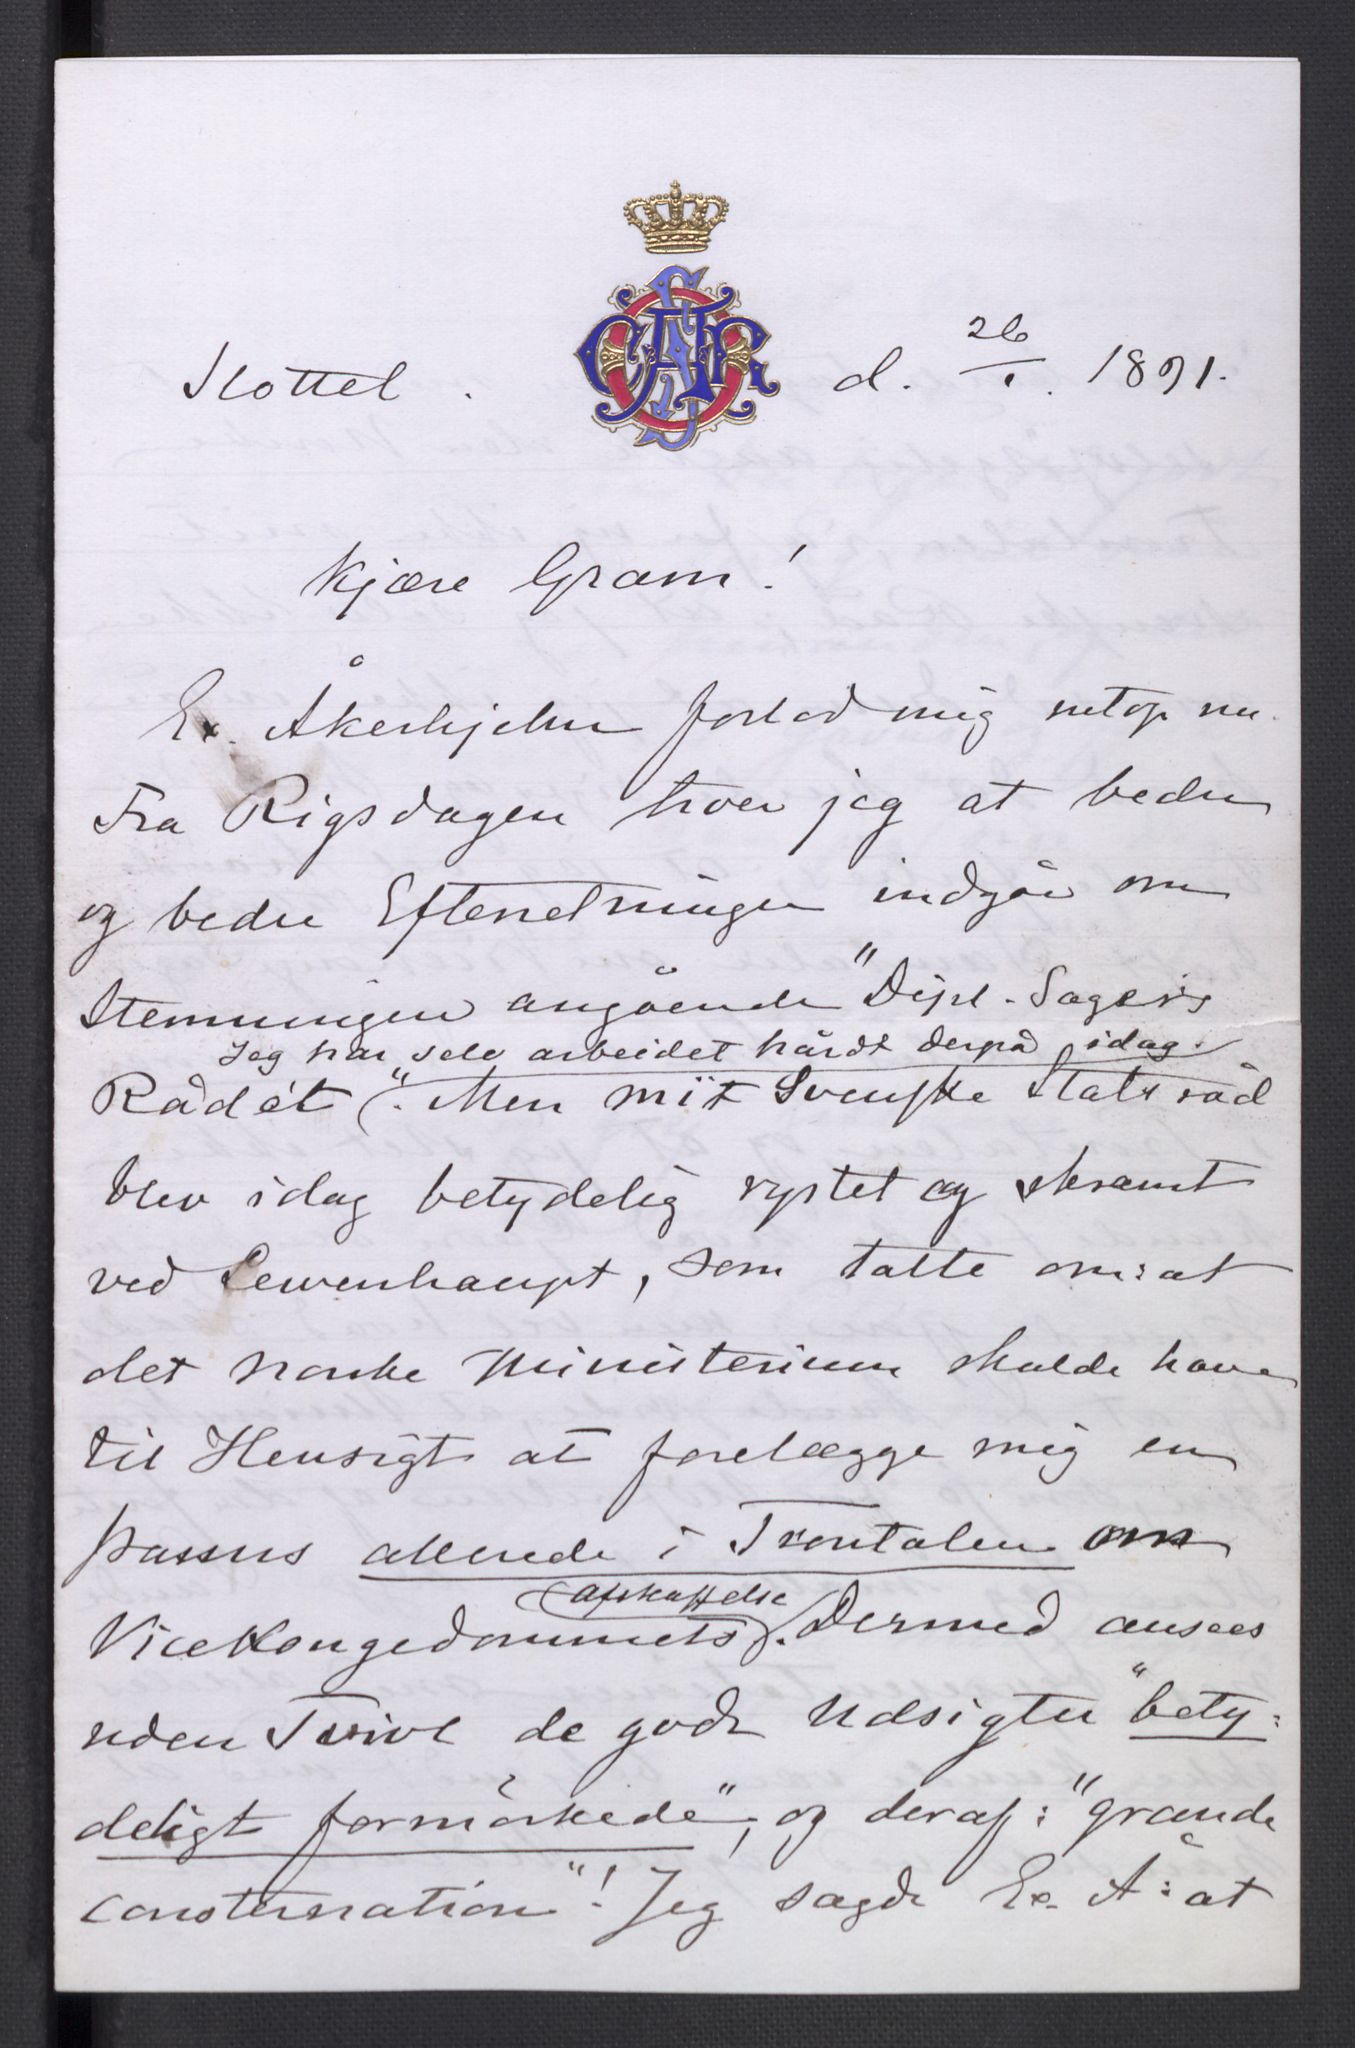 Slottet . d. 26/1. 1891.
Kjære Gram!
Ex. Åkerhjelm forlod mig netop nu.
Fra Rigsdagen troer jeg at bedre
og bedre Efterretninger indgåe om
Stemningen angående "Dipl. Sagers
Jeg har selv arbeidet hårdt derpå idag.
Rådet". Men mit Svenske Statsråd
blev idag betydelig rystet og skræmt
ved Lewenhaupt, som talte om: at
det norske Ministerium skulde have
til Hensigt at forelægge mig en
passus allerede i Trontalen om
afskaffelse
ViceKongedømmets. Dermed ansees
uden Tvivl de gode Udsigter "bety=
deligt formørkede", og deraf: "grande
consternation"! Jeg sagde Ex. Å: at